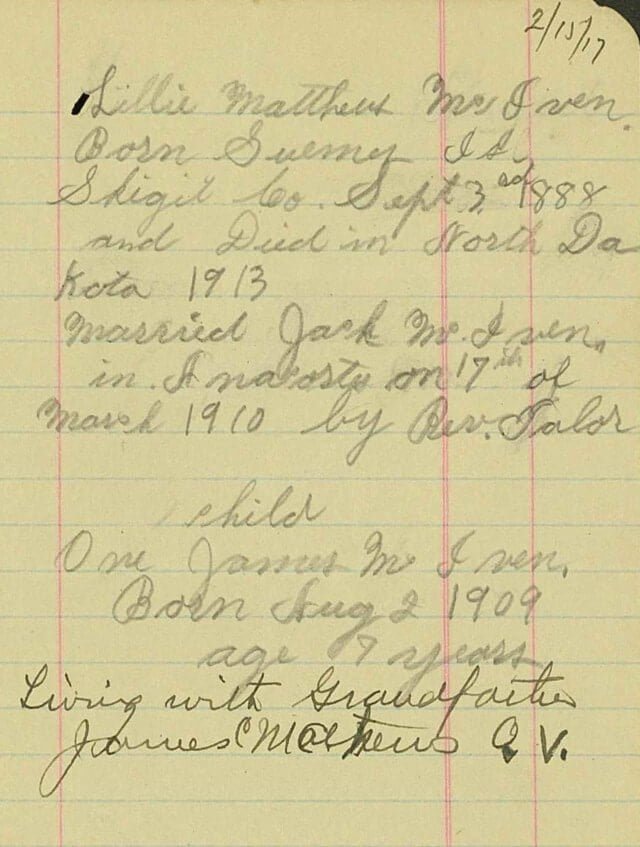 2/15/17
Lillie Matthews Mc Iven.
Born Guemes Is.
Skigit Co. Sept 3rd 1888
and Died in North Da
Kota 1913
Married Jack Mc Iven,
in Anacorts on 17th of
March 1910 by Rev. Talor
1 child
One James Mc Iven.
Born Aug 2 1909
age 7 years
Living with Grandfather
James Mathews